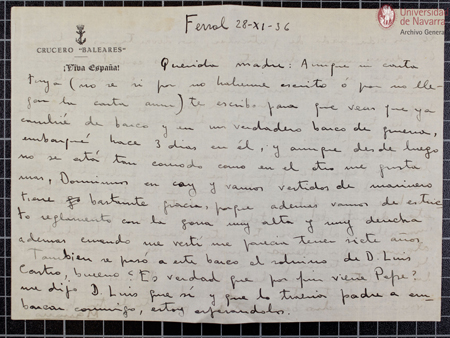 Universidad
de Navarra
Archivo General
Ferrol 28-XI-36
CRUCERO "BALEARES"
¡Viva España!
Querida madre: Aunque sin carta
tuya (no se si por no haberme escrito ó por no lle-
gar tu carta aun) te escribo para que veas que ya
cambié de barco y en un verdadero barco de guerra,
embarqué hace 3 dias en él, y aunque desde luego
no se está tan comodo como en el otro me gusta
mas, Dormimos en coy y vamos vestidos de marinero
tiene bastante gracia, porque ademas vamos de estric-
to reglamento con la gorra muy alta y muy derecha
ademas cuando me vestí me parecia tener siete años
Tambien se pasó a este barco el sobrino de D. Luis
Castro, bueno ¿Es verdad que por fin viene Pepe?
me dijo D. Luis que sí y que lo traeria padre a em-
barcar conmigo, estoy esperandolos.